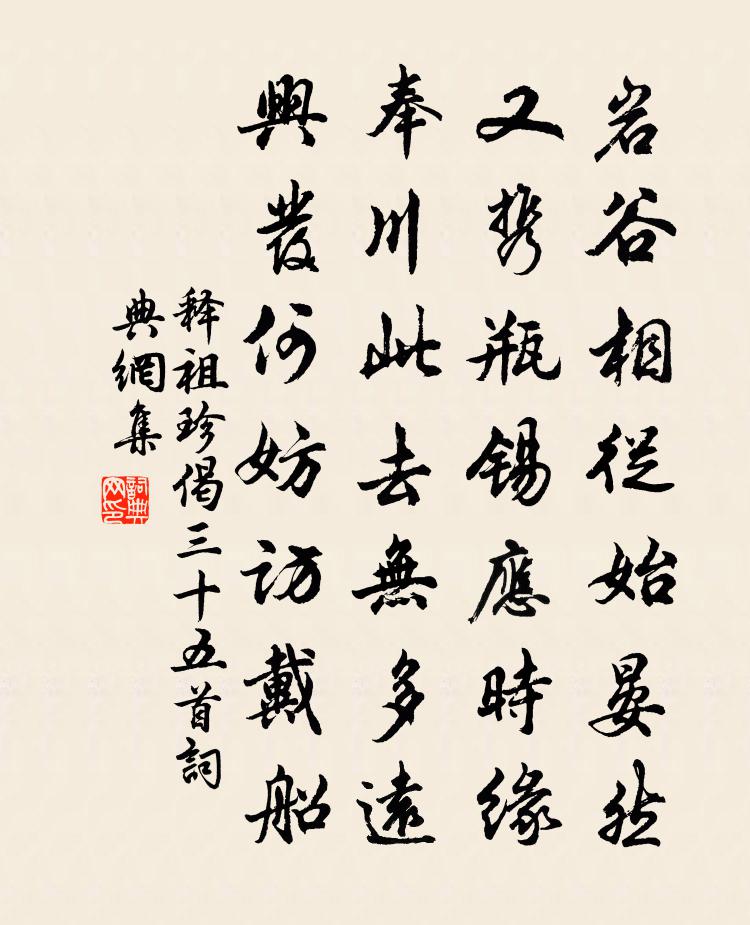 岩谷相從始晏然
又携瓶錫應時緣
奉川此去無多遠
興發何妨訪戴船
释祖珍偈三十五首詞
典網集
詞典网印